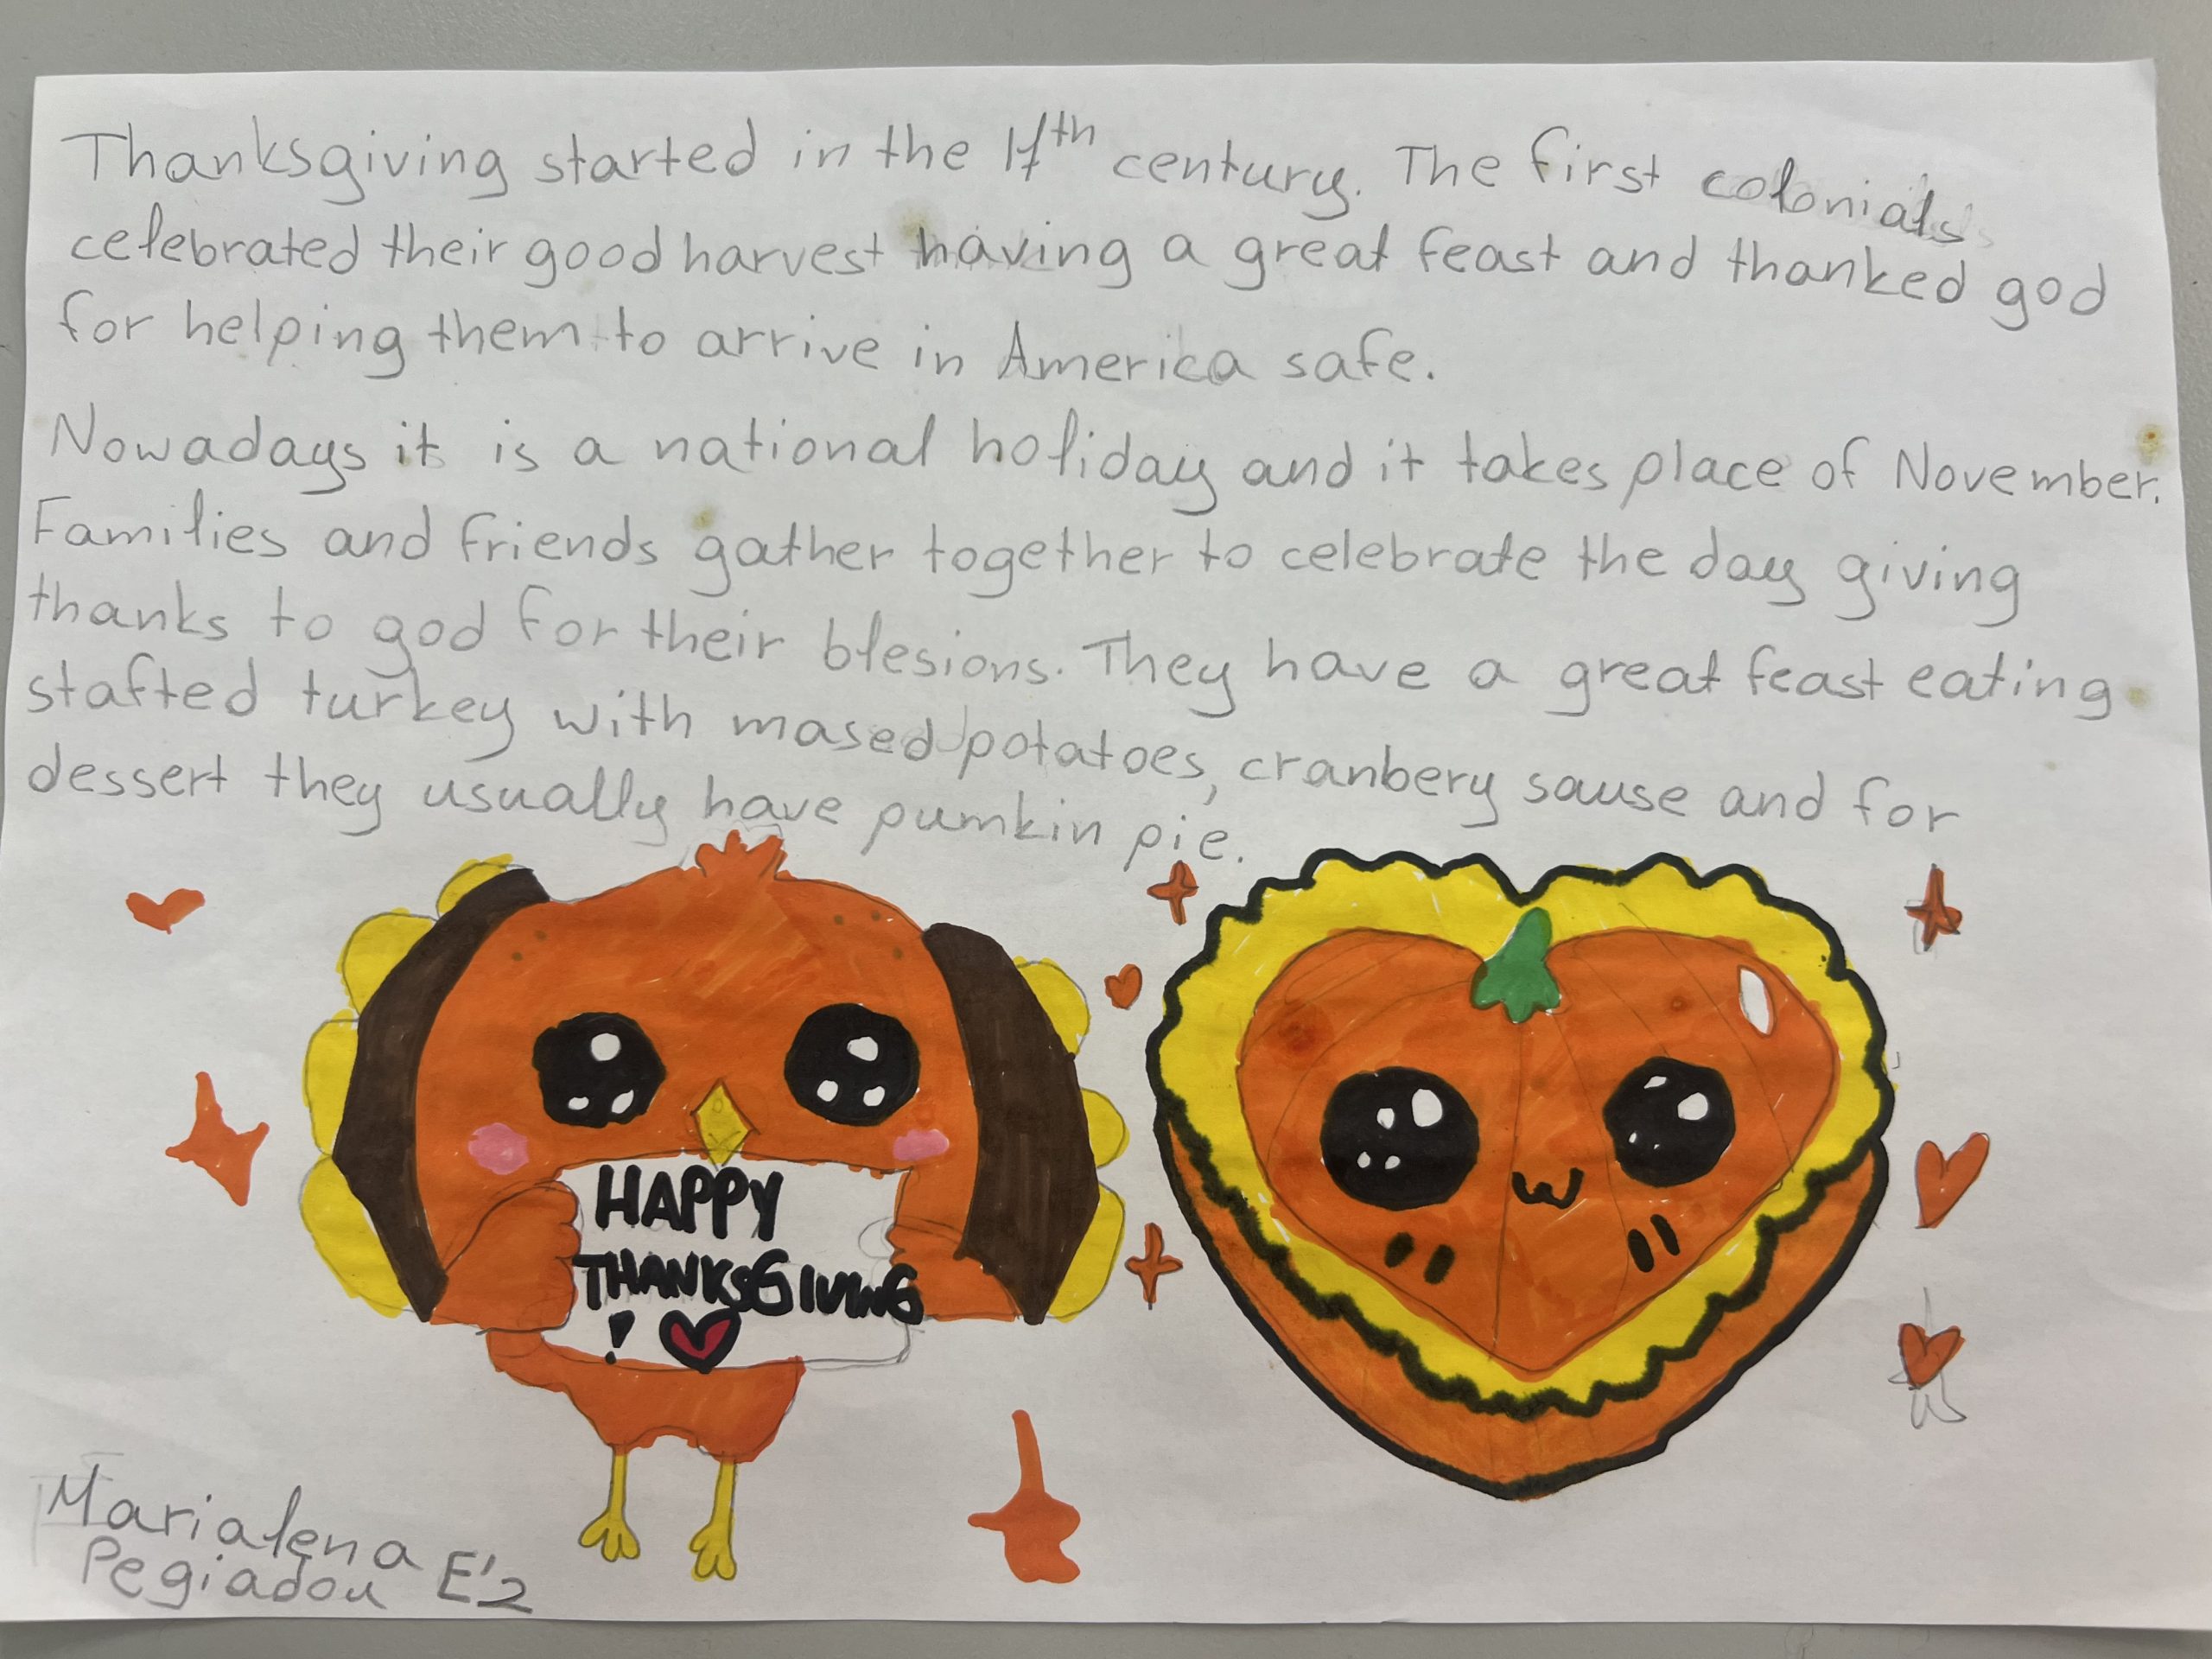 Thanksgiving started in the 17th century. The first colonials
celebrated their good harvest having a great feast and thanked god
for helping them to arrive in America safe.
Nowadays it is a national holiday and it takes place of November.
Families and friends gather together to celebrate the day giving
thanks to god for their blesions. They have a great feast eating
stafted turkey with mased potatoes, cranbery sause and for
dessert they usually have pumkin pie.
HAPPY
THANKSGIVING
!
Marialena
Pegiadou E'2